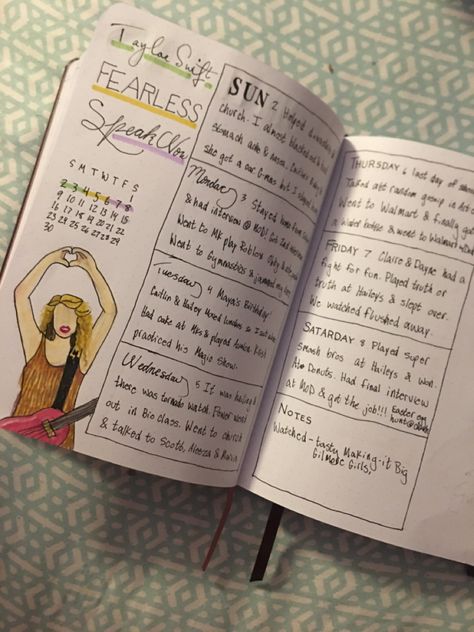 Taylor Swift
FEARLESS
Speak Now
S M T W T F S
1
2 3 4 5 6 7 8
9 10 11 12 13 14 15
16 17 18 19 20 21 22
23 24 25 26 27 28 29
30
SUN 2 Helped
church. I almost
stomach ache &
she got a
Monday 3 Stayed home from
& had interview @ MOD! Got 2nd interview
Went to MK play Roblox
Went to gymnastics & jammed my
Tuesday 4 Maya's Birthday!
Caitlin & Hailey
Had cake at Mrs & played
practiced his Magic show.
Wednesday 5 It was hailing &
there was tornado watch. Power went
out in Bio class. Went to church
& talked to Scott, Aleeza &
THURSDAY 6 last day of
Talked abt random group in
Went to Walmart & finally got
a water bottle & went to Walmart
FRIDAY 7 Claire & Dayne had a
fight for fun. Played truth or
truth at Haileys & slept over.
We watched flushed away.
SATARDAY 8 Played super
smash bros at Haileys & won.
Ate Donuts. Had final interview
at MOD & got the job!!! Easter egg
hunt@
NOTES
Watched - tasty Making-it Big
Gilmore Girls,